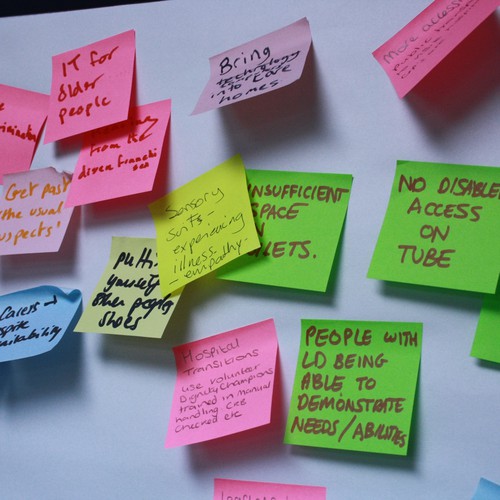 IT for
Older
people
Bring
technology
into care
homes
More access
Get past
the usual
suspects!
from it
Sensory
suits -
experiencing
illness.
- empathy -
INSUFFICIENT
SPACE
IN
NO DISABLED
ACCESS
ON
TUBE
putti
yourself
other peoples
shoes
Carers
Hospital
Transitions
use volunteer
Dignity Champions
trained in Manual
handling CRB
checked etc
PEOPLE WITH
LD BEING
ABLE TO
DEMONSTRATE
NEEDS/ABILITIES